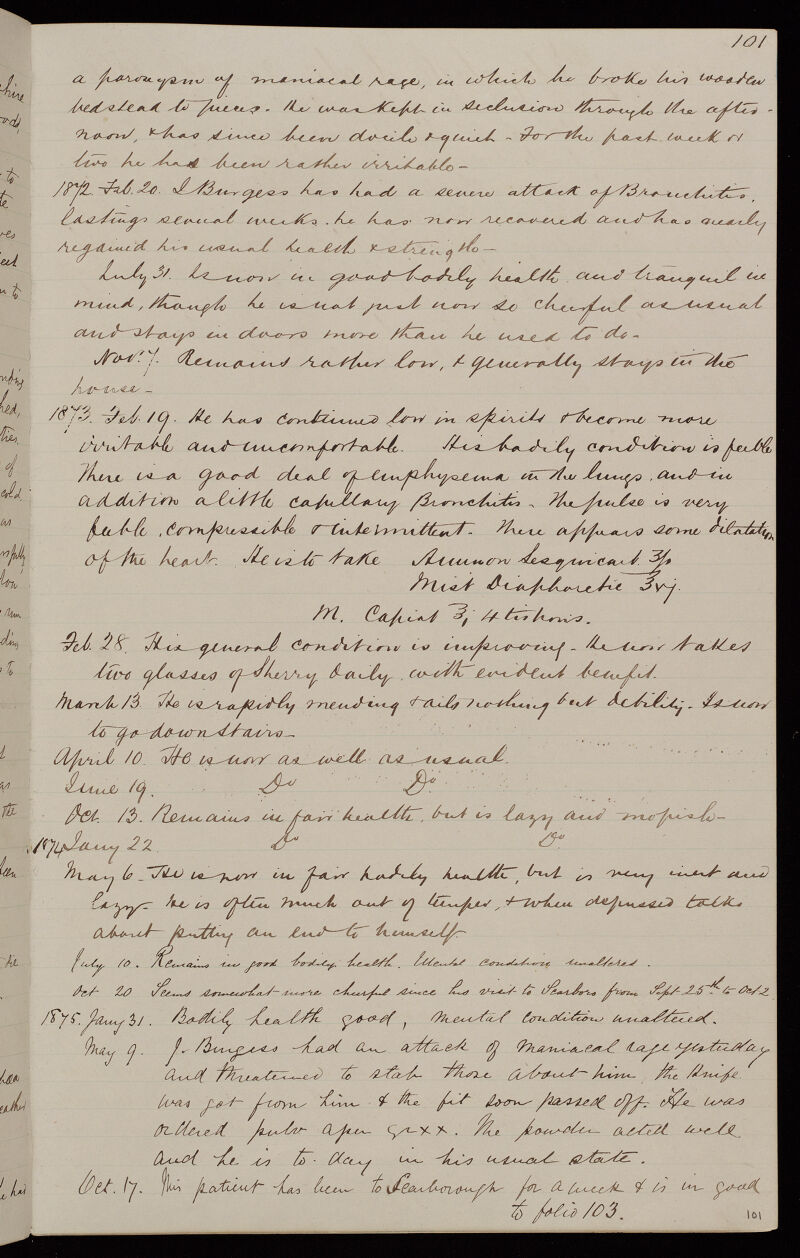 101
a paroxysm of maniacal rage, in which he broke his wooden
bedstead to pieces. He was kept in seclusion through the after-
noon, & has since been docile & quiet - For the past week or
two he has been rather irritable -
1872. Feb. 20. J Burgess has had a severe attack of Bronchitis,
lasting several weeks. he has now recovered and has nearly
regained his usual health & strength -
July 31. Is now in good bodily health and tranquil in
mind, though he is not just now so cheerful as usual
and stays in doors more than he used to do -
Nov. 7. Remains rather low, & generally stays in the
house -
1873. Feb. 19. He has continued low in spirits & become more
irritable and uncomfortable. His bodily condition is feeble
There is a good deal of emphysema in the lungs, and in
addition a little capillary Bronchitis - The pulse is very
feeble, compressible & intermittent. There appears some dilatation
of the heart. He is to take Ammon Sesquicarb. ʒfs
Mist Diaphoretic ℥vj.
M. Capiat ℥j 4tis horis.
Feb. 28. His general condition is improving - He now takes
two glasses of Sherry daily with evident benefit.
March 13. He is rapidly mending & ails nothing but debility - Is now
to go down stairs -
April 10. He is now as well as usual.
June 19. Do Do
Oct. 13. Remains in fair health, but is lazy and mopish -
1874 Jany 22 Do Do
May 6 - He is now in fair bodily health, but is very inert and
lazy - He is often much out of temper, & when depressed talks
about putting an end to himself
July 10. Remains in good bodily health. Mental condition unaltered.
Oct 20 Seems somewhat more cheerful since his visit to Scarboro from Sept 25th to Oct 2
1875. Jany 31. Bodily health good, mental condition unaltered.
May 9. J. Burgess had an attack of maniacal rage yesterday
and threatened to stab those about him, the knife
was got from him & the fit soon passed off. He was
ordered pulv aper gr xx. The powder acted well
and he is to day in his usual state.
Oct. 17. This patient has been to Scarborough for a week & is in good
to folio 103.
101